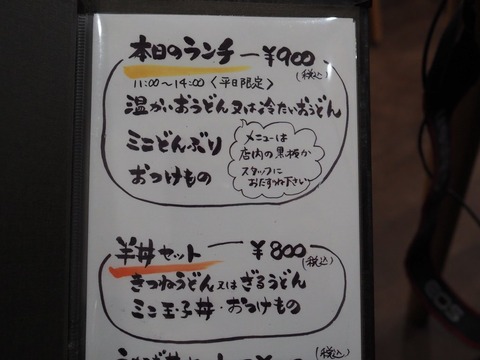 本日のランチ ¥900
(税込)
11:00~14:00〈平日限定〉
温かいおうどん又は冷たいおうどん
ミニどんぶり
おつけもの
メニューは
店内の黒板か
スタッフに
おたずね下さい
半丼セット ¥800
(税込)
きつねうどん又はざるうどん
ミニ玉子丼・おつけもの
(税込)
EOS